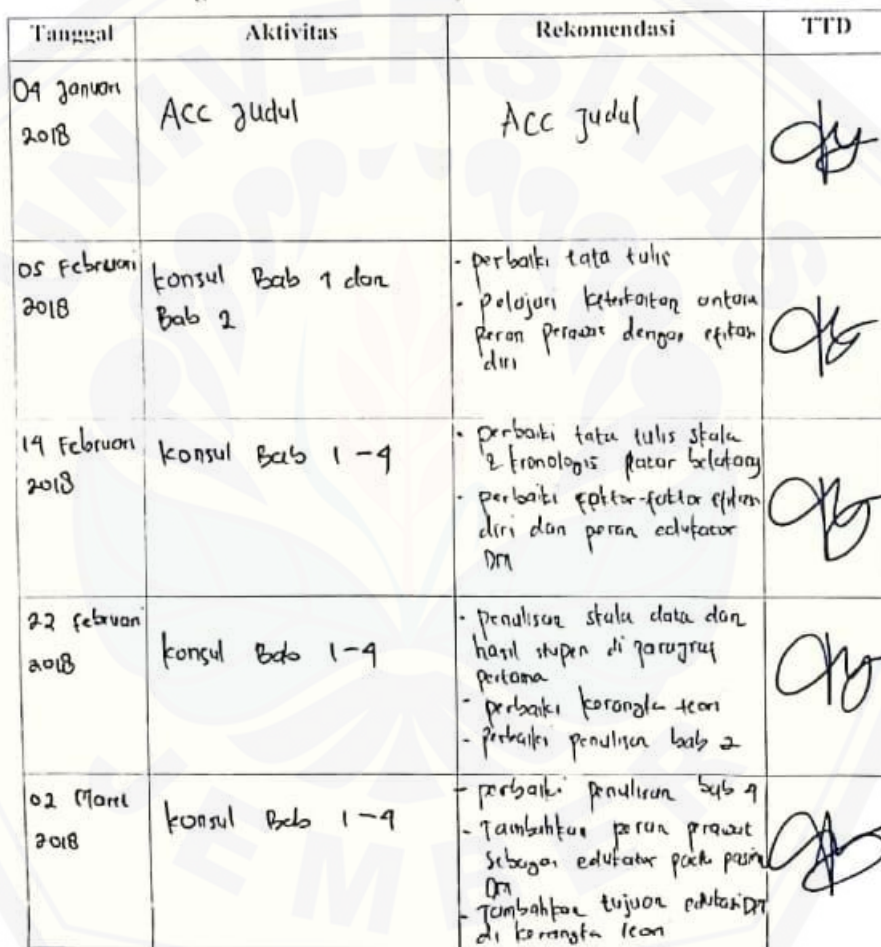 Tanggal Aktivitas Rekomendasi TTD
04 Januari
2018
ACC Judul
ACC Judul
05 Februari
2018
konsul Bab 1 dan
Bab 2
- perbaiki tata tulis
- pelajari keterkaitan antara
peran perawat dengan efikasi
diri
19 Februari
2018
konsul Bab 1-4
- perbaiki tata tulis skala
& kronologis latar belakang
- perbaiki faktor-faktor efikasi
diri dan peran edukator
DM
22 Februari
2018
konsul Bab 1-4
- penulisan skala data dan
hasil stupen di paragraf
pertama
- perbaiki kerangka teori
- perbaiki penulisan bab 2
02 Maret
2018
konsul Bab 1-4
- perbaiki penulisan bab 4
- Tambahkan peran perawat
sebagai edukator pada pasien
DM
- Tambahkan tujuan edukasi DM
di kerangka teori
UNIVERSITAS
JEMBER